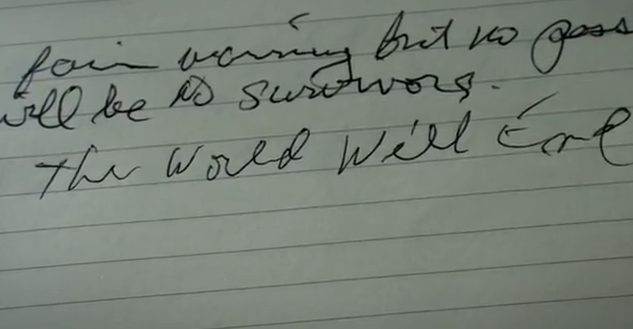 fair warning but no pass
will be no survivors.
The World Will End